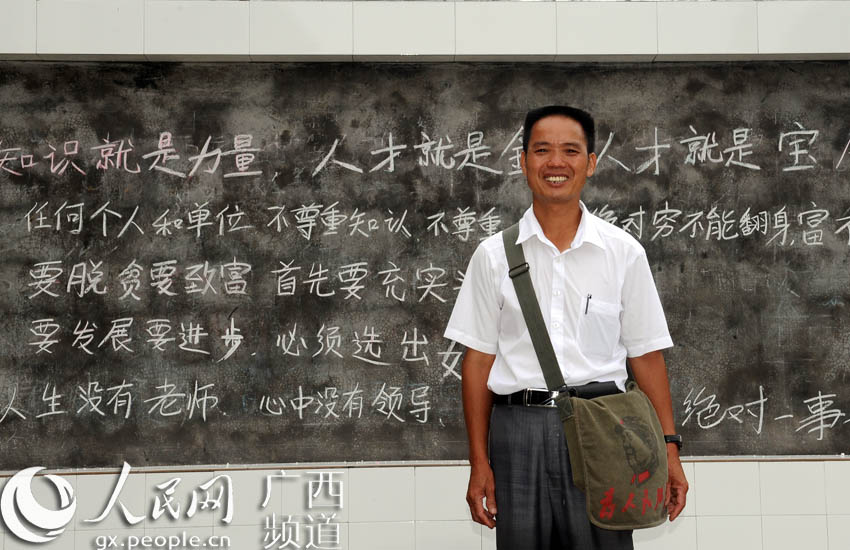 知识就是力量，人才就是金 人才就是宝
任何个人和单位 不尊重知认 不尊重 绝对穷不能翻身.富不
要脱贫要致富 首先要充实
要发展要进步.必须选出
人生没有老师.心中没有领导. 绝对一事
为人民
人民网 广西
gx.people.cn 频道